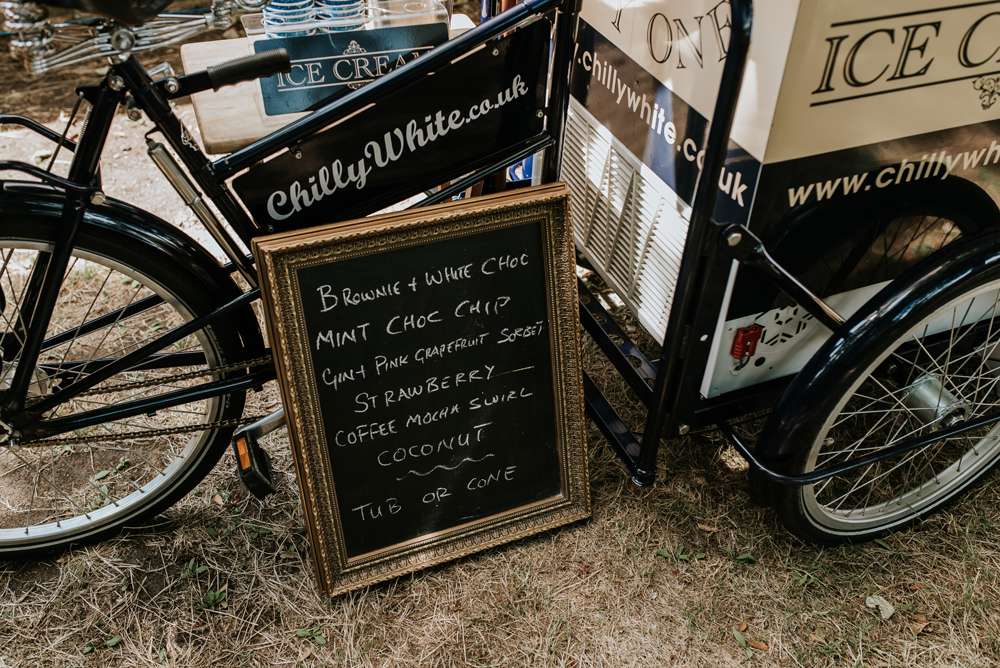 ICE CREAM
ChillyWhite.co.uk
Y ONE
.chillywhite.co.uk
ICE C
www.chillywh
BROWNIE + WHITE CHOC
MINT CHOC CHIP
GIN + PINK GRAPEFRUIT SORBET
STRAWBERRY
COFFEE MOCHA SWIRL
COCONUT
TUB OR CONE